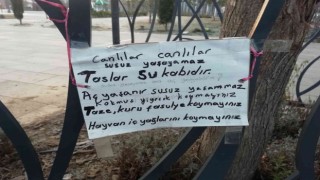 Canlılar canlılar
susuz yaşayamaz
Taslar su kabıdır.
Aç yaşanır susuz yaşanmaz
Kokmuş yiyecek koymayınız
Taze, kuru fasulye koymayınız
Hayvan iç yağlarını koymayınız